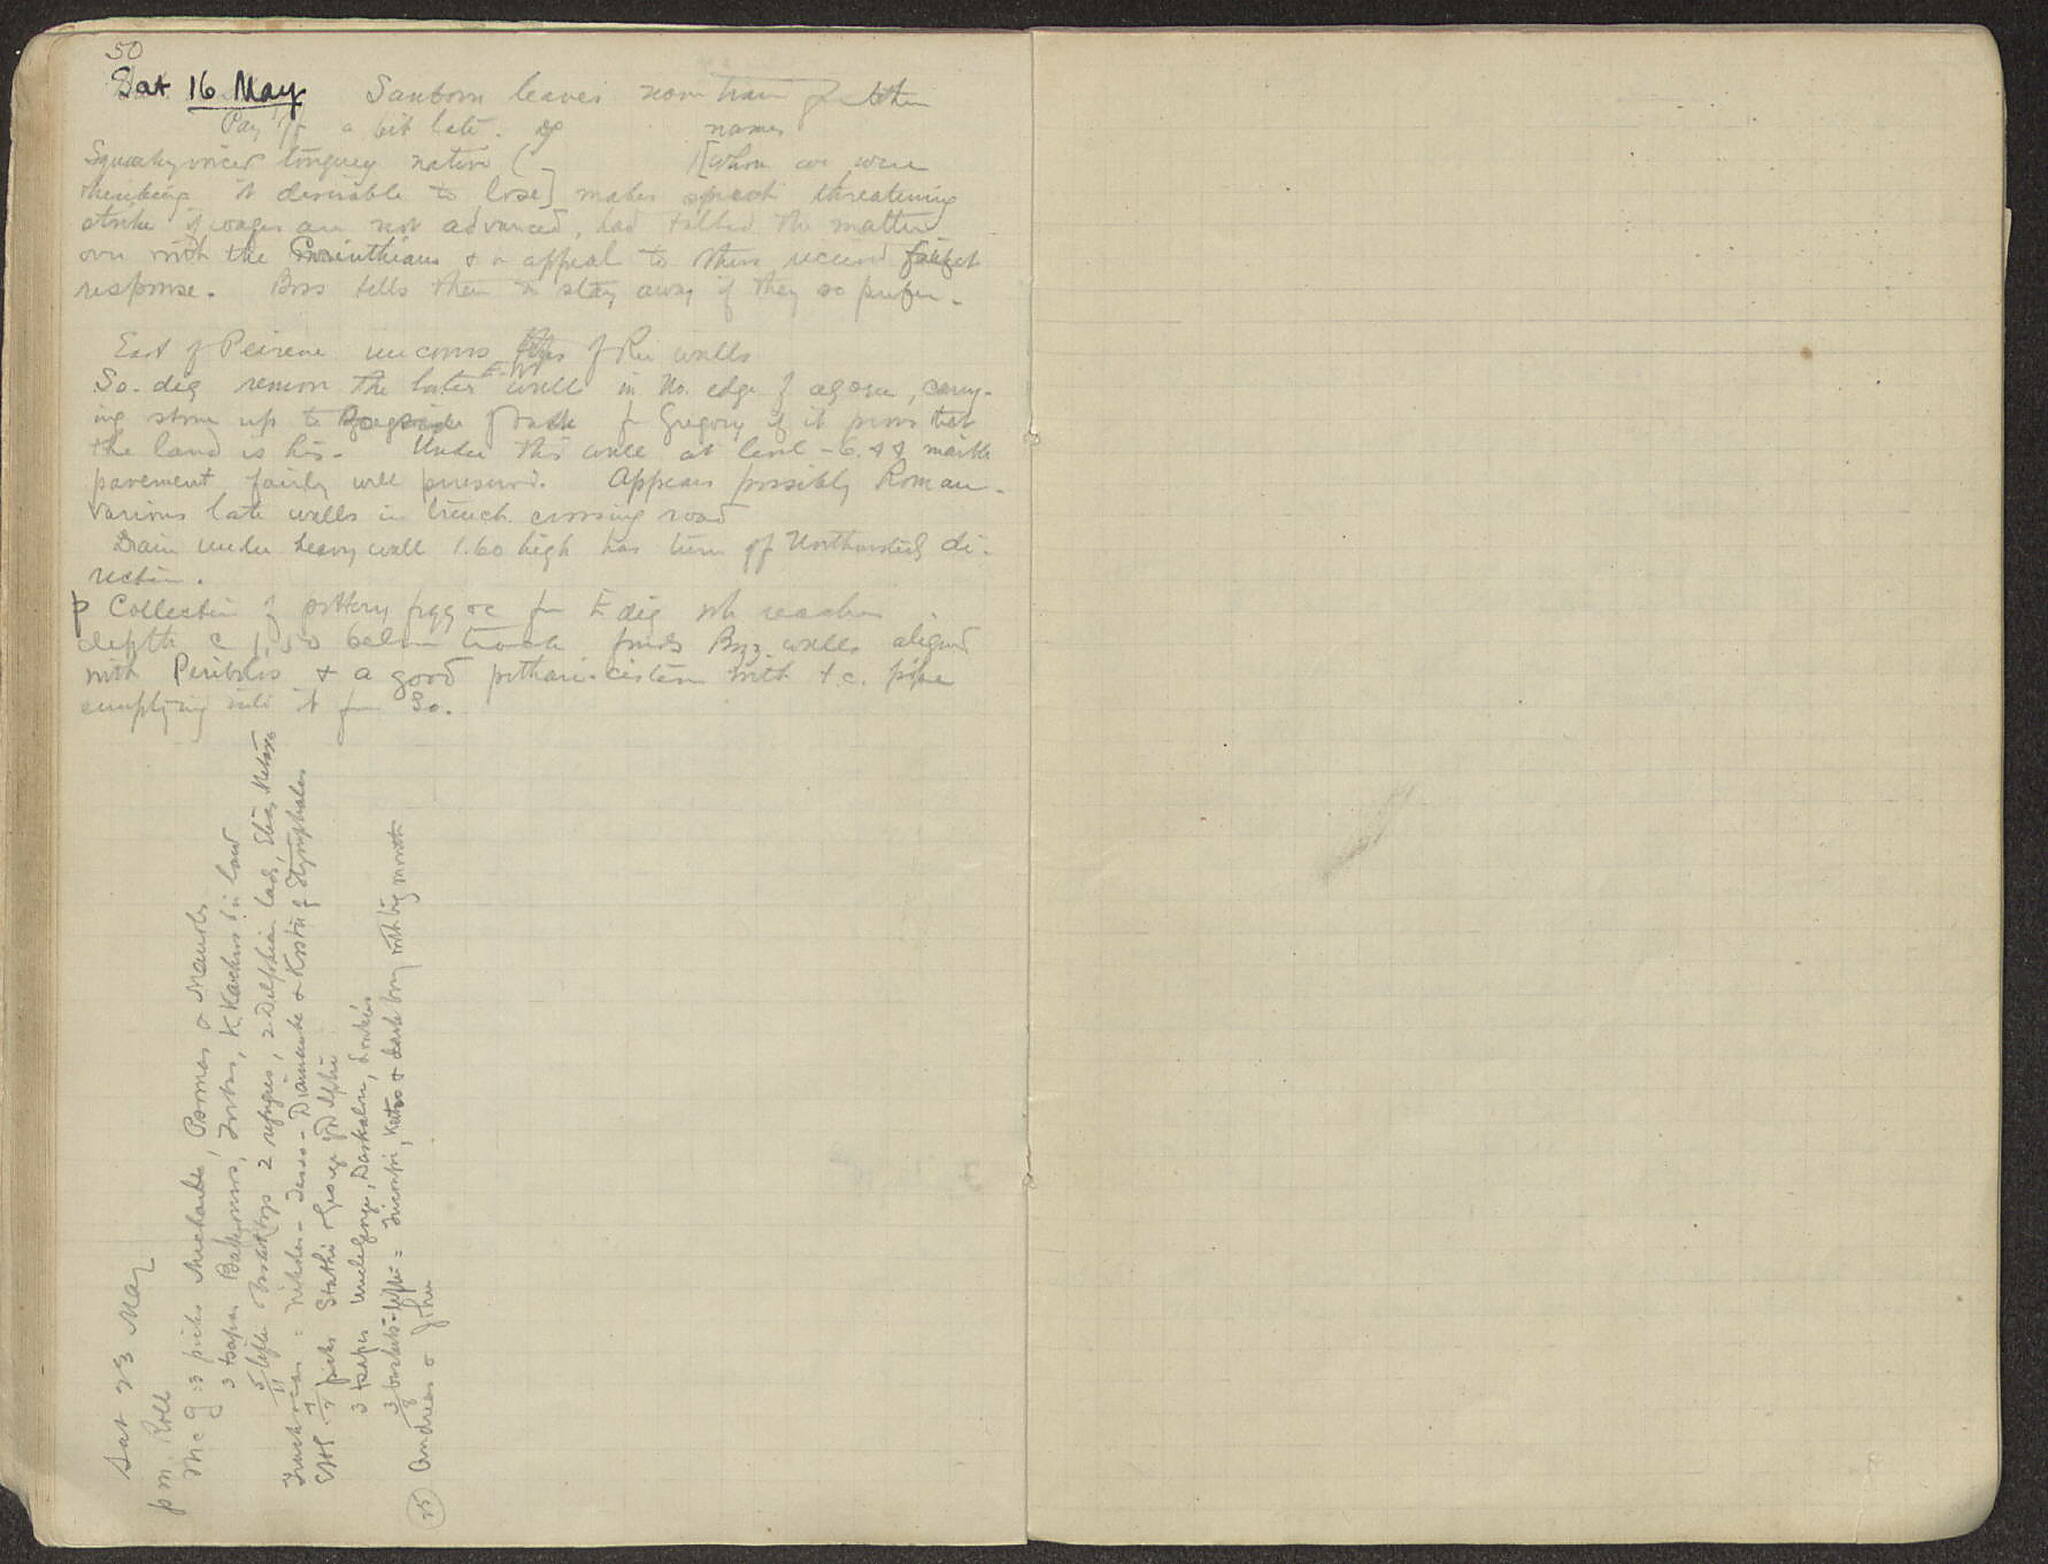 50
Sat 16 May Sanborn leaves noon train for Athen
Pay off a bit late. names
Squeaky voiced tonguey native ( ) [whom we were
thinking it desirable to lose] makes speech threatening
strike if wages are not advanced, had talked the matter
over with the Corinthians & on appeal to them received
response. Boss tells them to stay away if they so prefer.
East of Peirene uncovers tops of Ru walls
So. dig remove the later E-W wall in No. edge of agora, carry-
ing stone up to of for Gregory if it proves that
the land is his. Under this wall at level -6.44 marble
pavement fairly well preserved. Appears possibly Roman.
Various late walls in trench crossing road
Drain under heavy wall 1.60 high has turn of Northwesterly di-
rection.
P Collection of pottery frgg etc from E dig wh reaches
depth c 1.50 below track finds Byz. walls aligned
with Peribolos & a good pithari-cistern with t.c. pipe
emptying into it from So.
Sat 23 May
pm. Roll
McG : 3 picks Michaele, Pannas & Manoles
3 tsapas Bakouros, Intzes, K. Kachros' in law
5 lefta 2 refugees, 2 Delphian lads, Elias Metaxas
11
Track = Nikolas - - Diamante & Kostis of Stymphalos
4
SHH. 2 picks Stathi & George
3 tsapas , Daskalon,
3 baskets = , Katsos & dark boy with big mouth
8
25 Andreas &